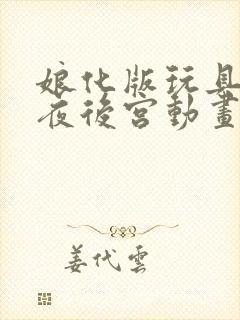 娘化版玩具
夜後宮動畫
姜代雲